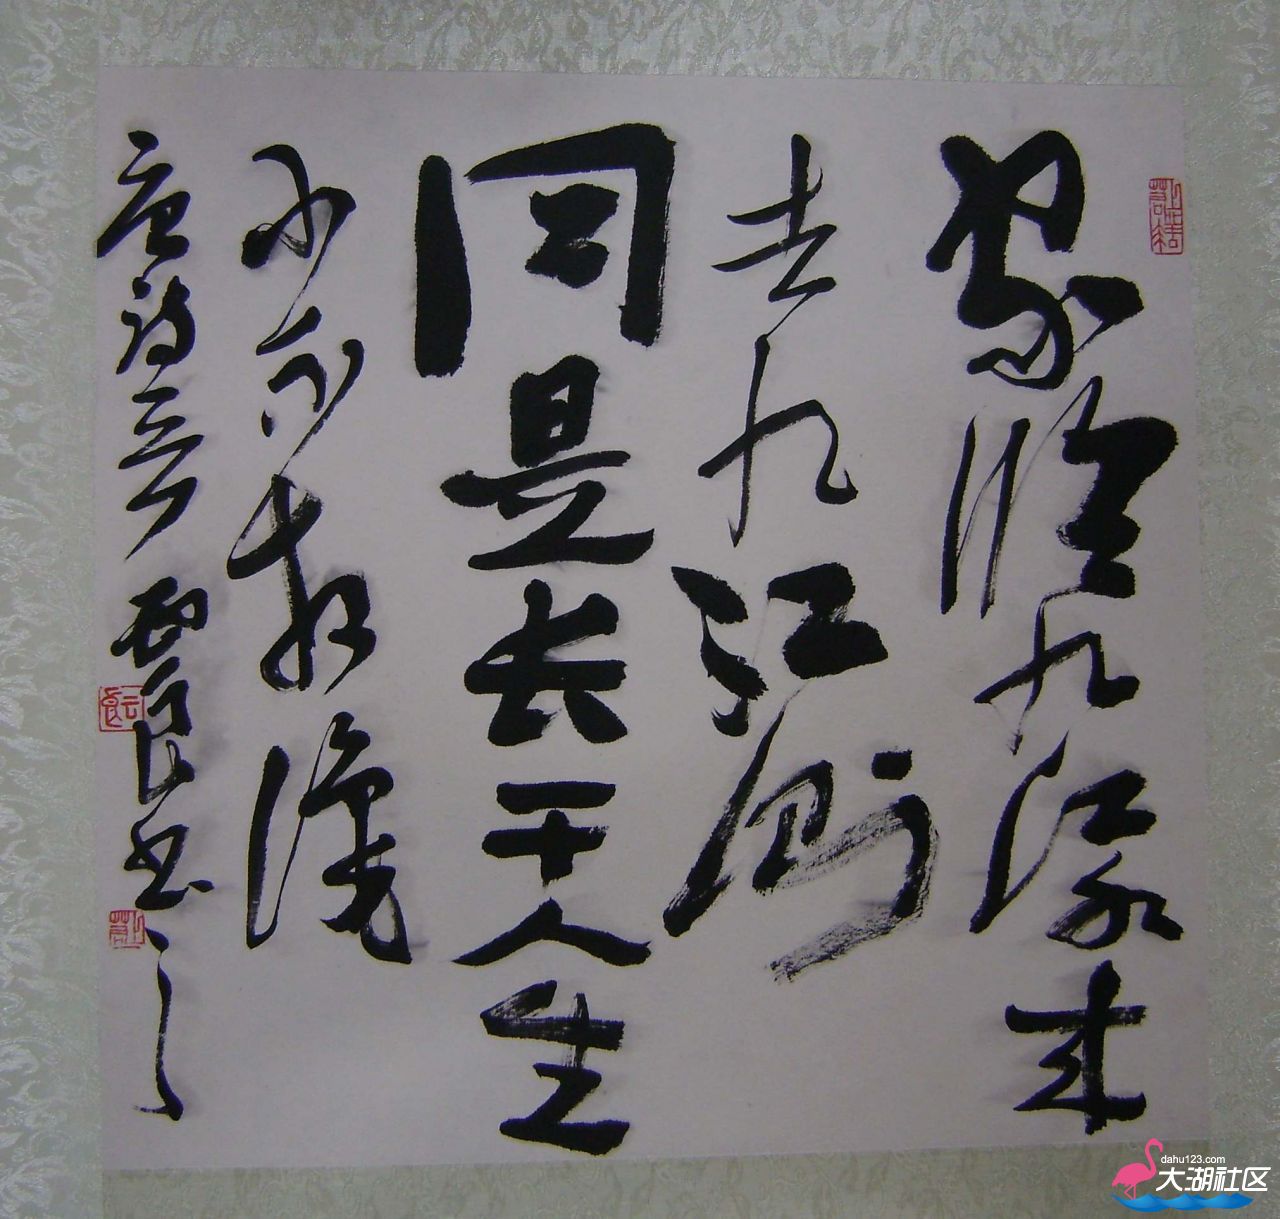 家临九江水来
去九江侧
同是长干人生
小不相识
唐诗一首 雲良书之
云良
dahu123.com
大湖社区